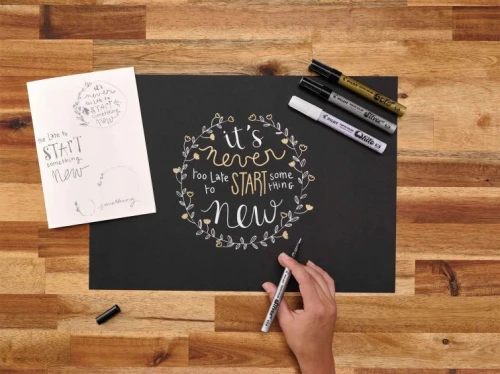 it's
never
too late
to START some
thing
new
too late to
START
something
new
something
PILOT
PILOT
PILOT